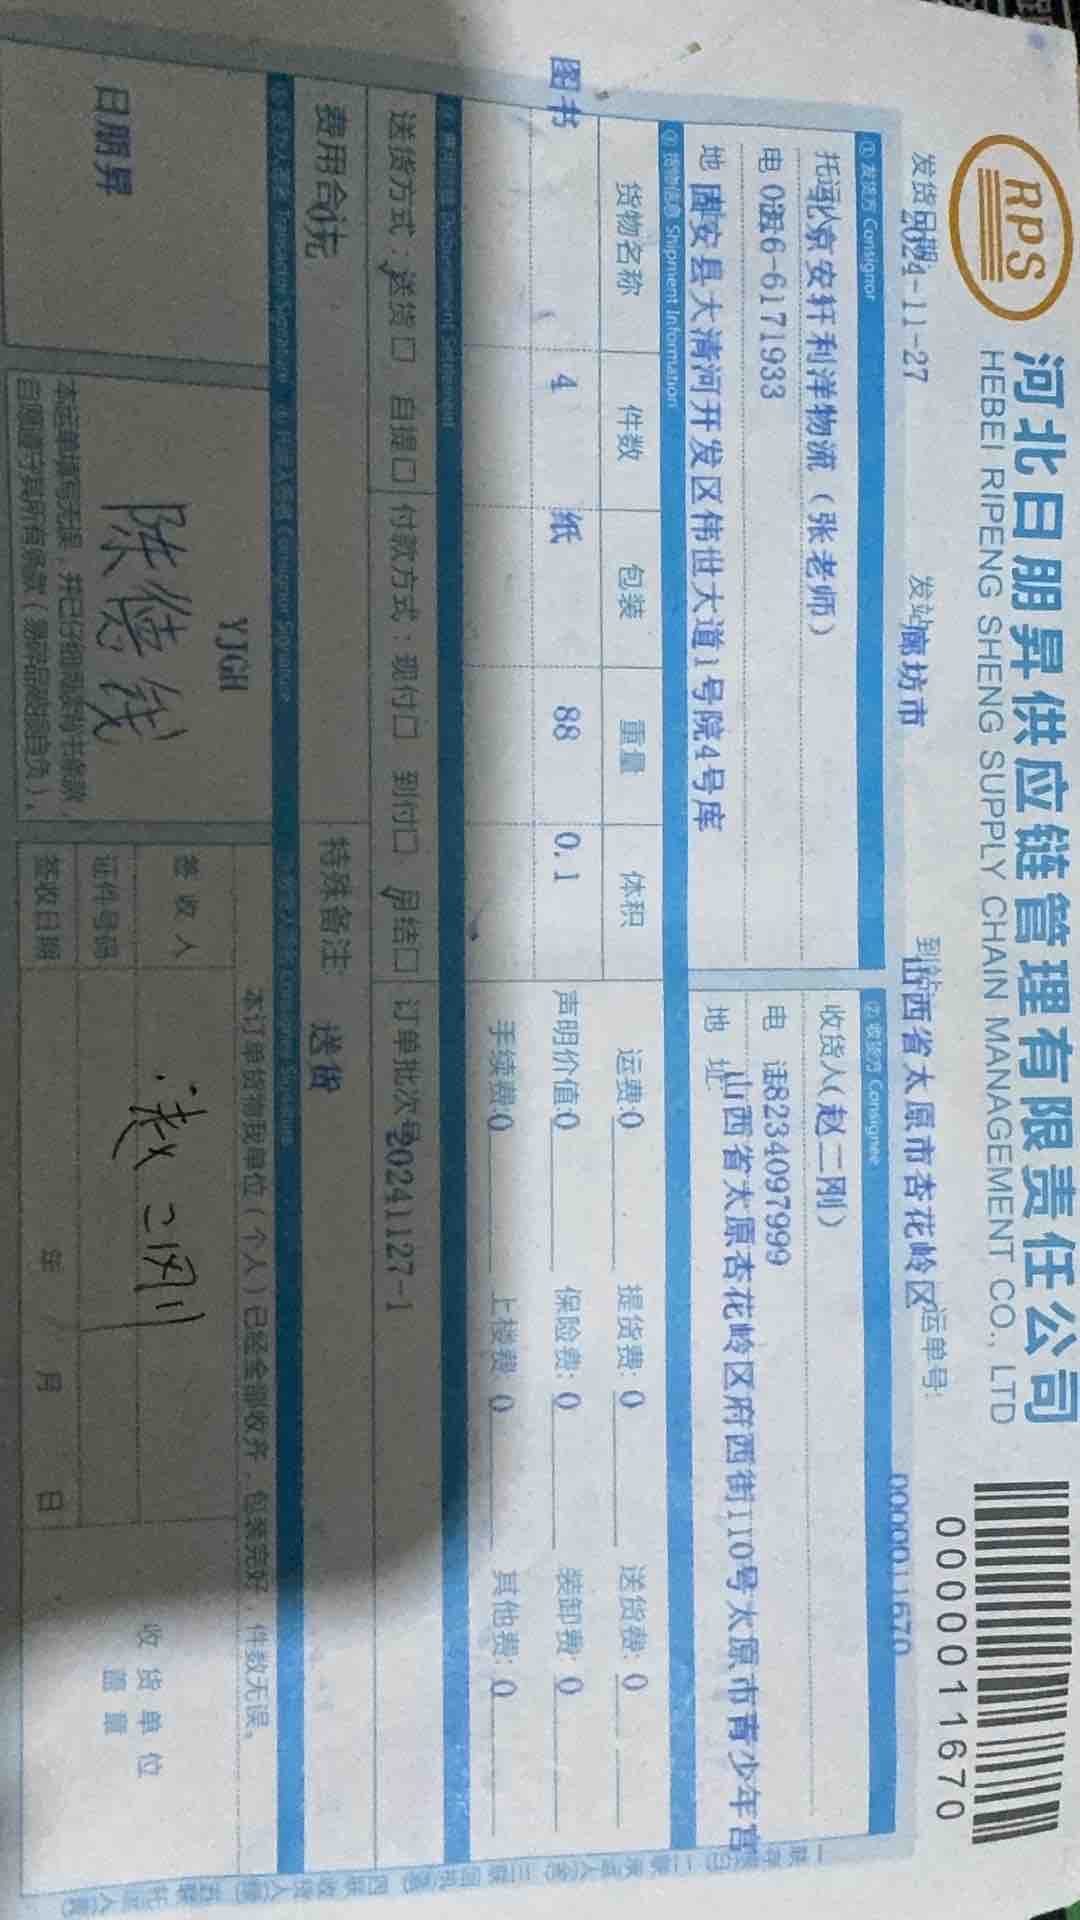 RPS
河北日朋昇供应链管理有限责任公司
HEBEI RIPENG SHENG SUPPLY CHAIN MANAGEMENT CO., LTD
0000011670
发货日期: 2024-11-27 发站 廊坊市 到站 山西省太原市杏花岭区 运单号: 0000011670
① 发货方 Consignor
② 收货方 Consignee
托运人 北京安轩利洋物流（张老师）
收货人 (赵二刚)
电话 0316-6171933
电 话 8234097999
地 固安县大清河开发区伟世大道1号院4号库
地 址 山西省太原杏花岭区府西街110号太原市青少年宫
③ 货物信息 Shipment Information
货物名称 件数 包装 重量 体积
运费:0 提货费: 0 送货费: 0
图书 4 纸 88 0.1
声明价值:0 保险费: 0 装卸费: 0
手续费:0 上楼费 0 其他费: 0
送货方式: 送货口 自提口
付款方式: 现付口 到付口 月结口
订单批次号 20241127-1
费用合计: 0元
特殊备注 送货
Consignor Signature
日朋昇
YJGH
本订单货物我单位（个人）已经全部收齐，包装完好，件数无误。
签 收 人 赵二刚
证件号码
签收日期 年 月 日
收货单位
盖章
本运单填写无误，并已仔细阅读背书条款，
自愿遵守其所有条款（易碎品破损自负）。